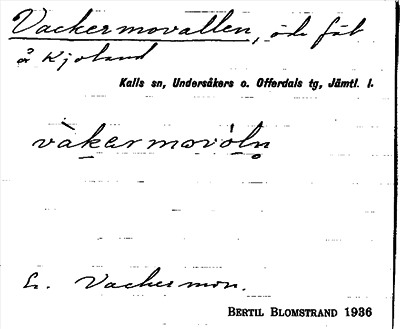 Vackermovallen, öde fäb
å Kjoland
Kalls sn, Undersåkers o. Offerdals tg, Jämtl. l.
vàkermovòln
Vackermon.
BERTIL BLOMSTRAND 1936